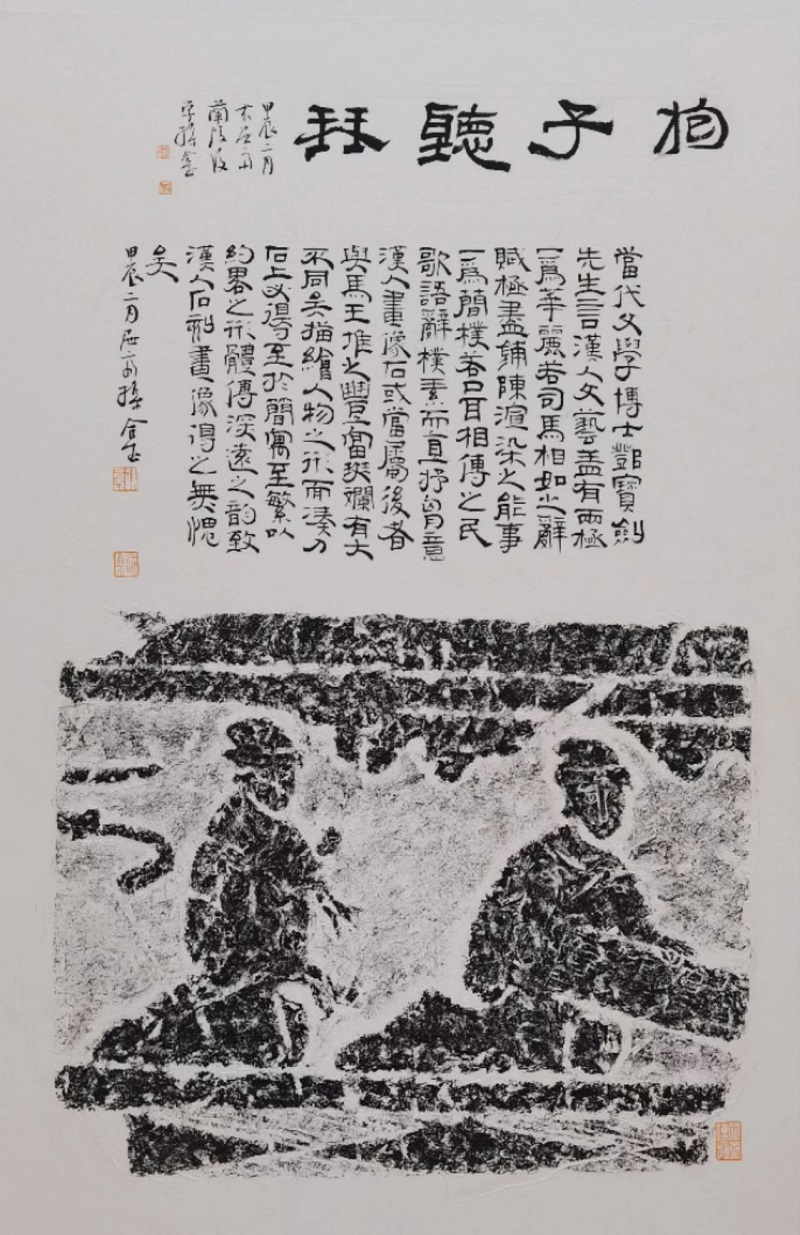 抱子聽琹
甲辰二月
古居
蘭陵後
學孫鑫
當代文學博士酆寶劍
先生言漢人文藝盖有兩極
一爲華麗若司馬相如之辭
賦極盡鋪陳渲染之能事
一爲簡樸若口耳相傳之民
歌語辭樸素而直抒胷意
漢人畫像石或當屬後者
與馬王堆之豐富斑斕有大
不同矣描繪人物之形而湊刀
石上必得至於簡寓至繁以
約畧之形體傳深遠之韵致
漢人石刻畫像得之無愧
矣
甲辰二月